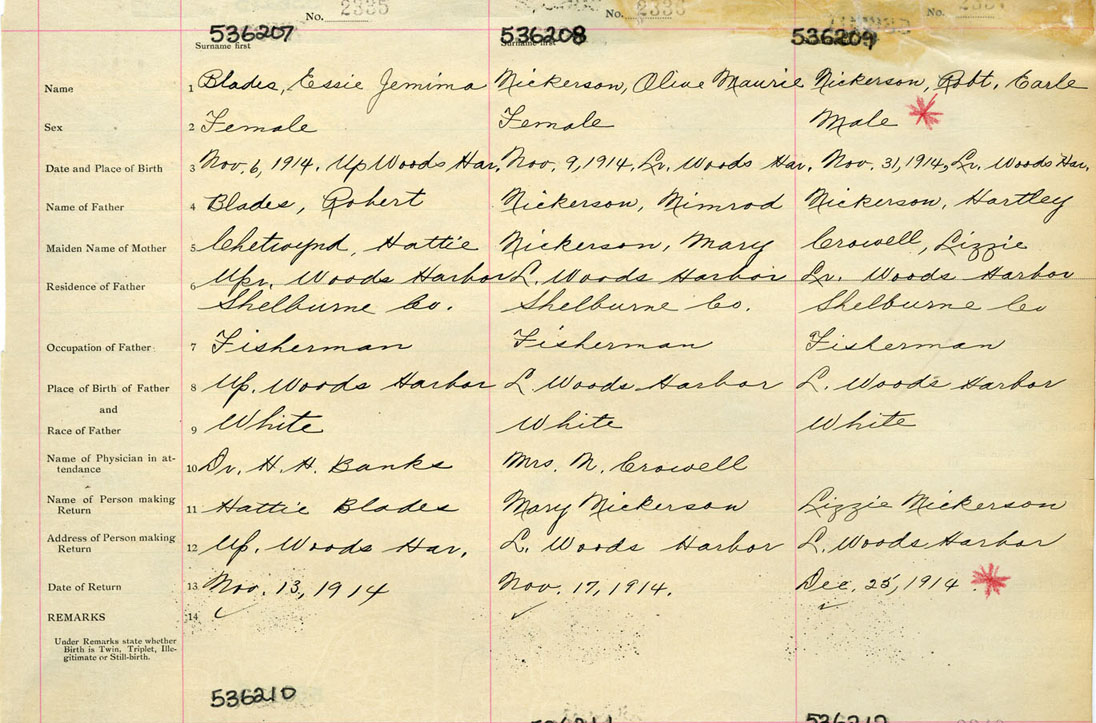 No. 2335
No. 2336
No.
536207
536208
536209
Surname first
Surname first
Name 1 Blades, Essie Jemima Nickerson, Olive Maurie Nickerson, Robt. Earle
Sex 2 Female Female Male
Date and Place of Birth 3 Nov. 6, 1914. Up Woods Har. Nov. 9, 1914, Lr. Woods Har. Nov. 31, 1914, Lr. Woods Har.
Name of Father 4 Blades, Robert Nickerson, Nimrod Nickerson, Hartley
Maiden Name of Mother 5 Chetwynd, Hattie Nickerson, Mary Crowell, Lizzie
Residence of Father 6 Upr. Woods Harbor L. Woods Harbor Lr. Woods Harbor
Shelburne Co. Shelburne Co. Shelburne Co
Occupation of Father 7 Fisherman Fisherman Fisherman
Place of Birth of Father 8 Up. Woods Harbor L. Woods Harbor L. Woods Harbor
and
Race of Father 9 White White White
Name of Physician in at-
tendance 10 Dr. H. H. Banks Mrs. N. Crowell
Name of Person making
Return 11 Hattie Blades Mary Nickerson Lizzie Nickerson
Address of Person making
Return 12 Up. Woods Har. L. Woods Harbor L. Woods Harbor
Date of Return 13 Nov. 13, 1914 Nov. 17, 1914. Dec. 25, 1914
REMARKS 14
Under Remarks state whether
Birth is Twin, Triplet, Ille-
gitimate or Still-birth.
536210